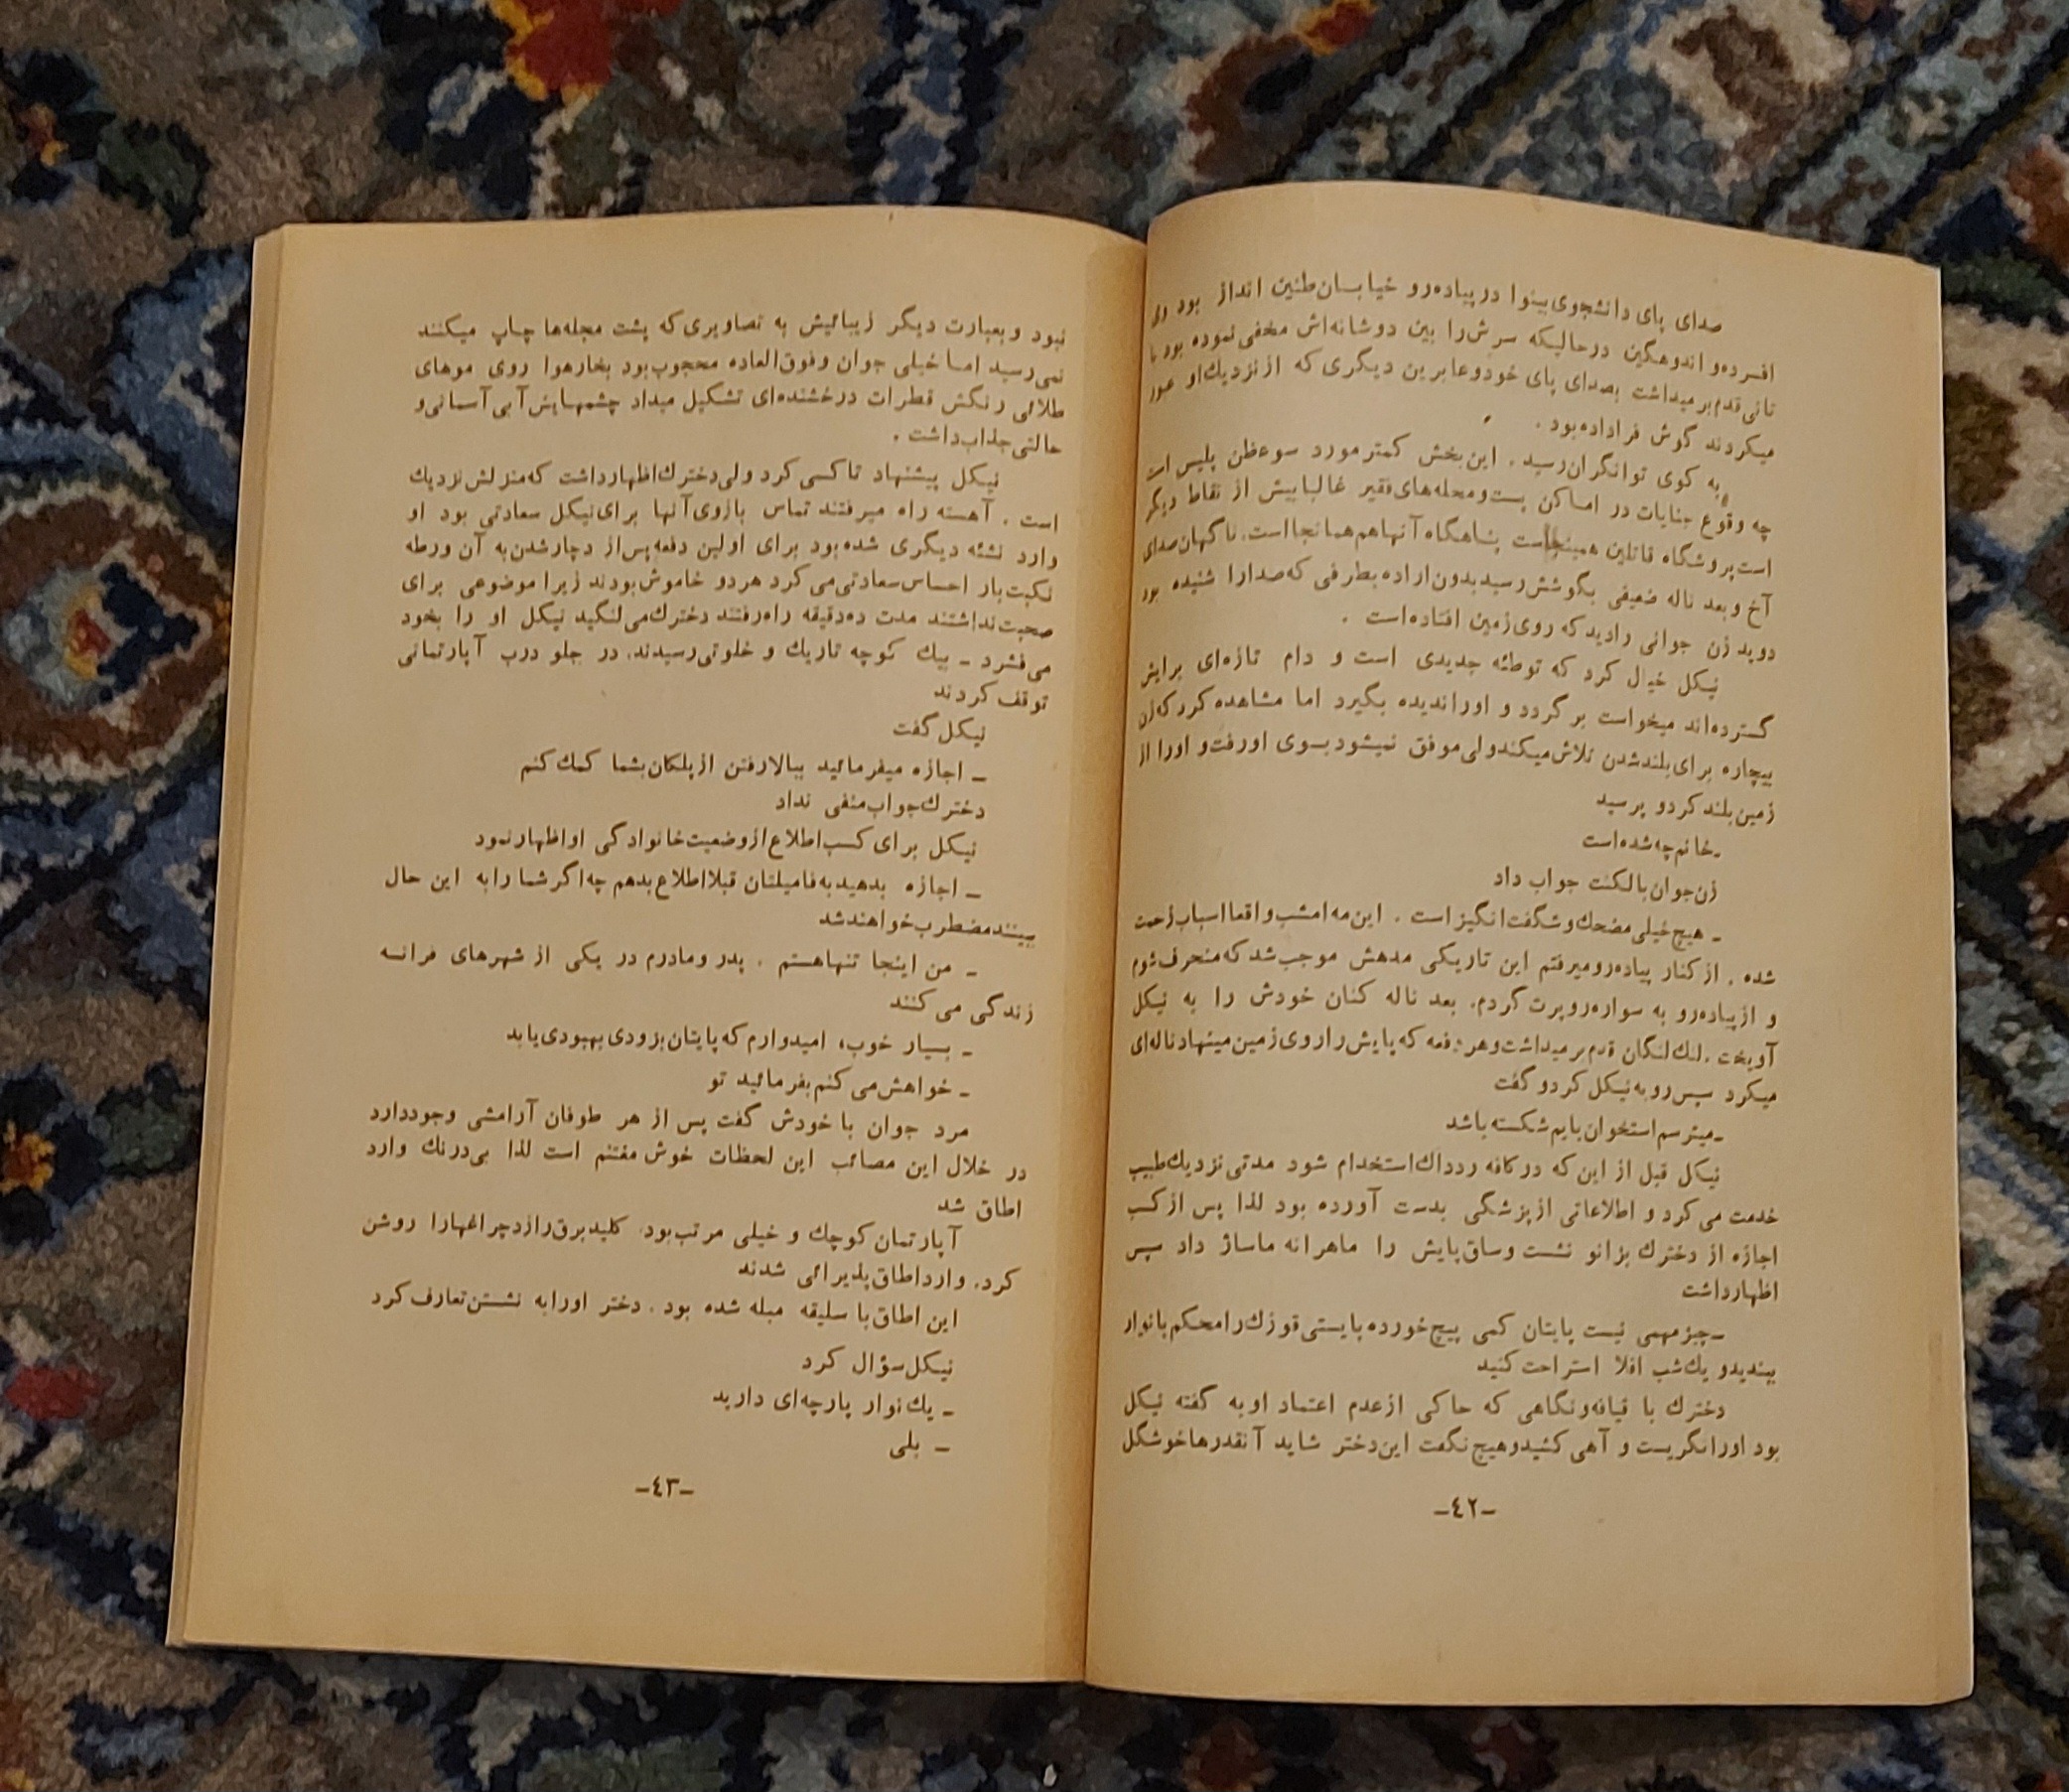 صدای پای دانشجوی بینوا در پیاده‌رو خیابان طنین انداز بود ولی
افسرده و اندوهگین در حالیکه سرش را بین دو شانه‌اش مخفی نموده بود با
تانی قدم بر میداشت بصدای پای خود و عابرین دیگری که از نزدیك او عبور
میکردند گوش فرا داده بود .
به کوی توانگران رسید . این بخش کمتر مورد سوءظن پلیس است
چه وقوع جنایات در اماکن پست و محله‌های فقیر غالبا بیش از نقاط دیگر
است پروشگاه قاتلین همینجاست پناهگاه آنها هم همانجا است. ناگهان صدای
آخ و بعد ناله ضعیفی بگوشش رسید بدون اراده بطرفی که صدا را شنیده بود
دوید زن جوانی را دید که روی زمین افتاده است .
نیکل خیال کرد که توطئه جدیدی است و دام تازه‌ای برایش
گسترده‌اند میخواست بر گردد و او را ندیده بگیرد اما مشاهده کرد که زن
بیچاره برای بلند شدن تلاش میکند ولی موفق نمیشود بسوی او رفت و او را از
زمین بلند کرد و پرسید
ـ خانم چه شده است
زن جوان با لکنت جواب داد
ـ هیچ خیلی مضحك و شگفت انگیز است . این مه امشب واقعا اسباب زحمت
شده . از کنار پیاده‌رو میرفتم این تاریکی مدهش موجب شد که منحرف شوم
و از پیاده‌رو به سواره‌رو پرت گردم. بعد ناله کنان خودش را به نیکل
آویخت . لنك لنگان قدم بر میداشت و هر دفعه که پایش را روی زمین مینهاد ناله‌ای
میکرد سپس رو به نیکل کرد و گفت
ـ میترسم استخوان پایم شکسته باشد
نیکل قبل از این که در کافه ردداك استخدام شود مدتی نزدیك طبیب
خدمت می کرد و اطلاعاتی از پزشگی بدست آورده بود لذا پس از کسب
اجازه از دخترك بزانو نشست و ساق پایش را ماهرانه ماساژ داد سپس
اظهار داشت
ـ چیز مهمی نیست پایتان کمی پیچ خورده بایستی قوزك را محکم با نوار
ببندید و یك شب اقلا استراحت کنید
دخترك با قیافه و نگاهی که حاکی از عدم اعتماد او به گفته نیکل
بود او را نگریست و آهی کشید و هیچ نگفت این دختر شاید آنقدرها خوشگل
ـ٤٢ـ
نبود و بعبارت دیگر زیبائیش به تصاویری که پشت مجله‌ها چاپ میکنند
نمی رسید اما خیلی جوان و فوق العاده محجوب بود بخار هوا روی موهای
طلائی رنگش قطرات درخشنده‌ای تشکیل میداد چشمهایش آبی آسمانی و
حالتی جذاب داشت .
نیکل پیشنهاد تاکسی کرد ولی دخترك اظهار داشت که منزلش نزدیك
است . آهسته راه میرفتند تماس بازوی آنها برای نیکل سعادتی بود او
وارد نشئه دیگری شده بود برای اولین دفعه پس از دچار شدن به آن ورطه
نکبت بار احساس سعادتی می کرد هر دو خاموش بودند زیرا موضوعی برای
صحبت نداشتند مدت ده دقیقه راه رفتند دخترك می لنگید نیکل او را بخود
می فشرد ـ بیك کوچه تاریك و خلوتی رسیدند. در جلو درب آپارتمانی
توقف کردند
نیکل گفت
ـ اجازه میفرمائید ببالا رفتن از پلکان بشما کمك کنم
دخترك جواب منفی نداد
نیکل برای کسب اطلاع از وضعیت خانوادگی او اظهار نمود
ـ اجازه بدهید به فامیلتان قبلا اطلاع بدهم چه اگر شما را به این حال
ببینند مضطرب خواهند شد
ـ من اینجا تنها هستم . پدر و مادرم در یکی از شهرهای فرانسه
زندگی می کنند
ـ بسیار خوب، امیدوارم که پایتان بزودی بهبودی یابد
ـ خواهش می کنم بفرمائید تو
مرد جوان با خودش گفت پس از هر طوفان آرامشی وجود دارد
در خلال این مصائب این لحظات خوش مغتنم است لذا بی درنك وارد
اطاق شد
آپارتمان کوچك و خیلی مرتب بود، کلید برق را زد چراغها را روشن
کرد. وارد اطاق پذیرائی شدند
این اطاق با سلیقه مبله شده بود . دختر او را به نشستن تعارف کرد
نیکل سؤال کرد
ـ یك نوار پارچه‌ای دارید
ـ بلی
ـ٤٣ـ